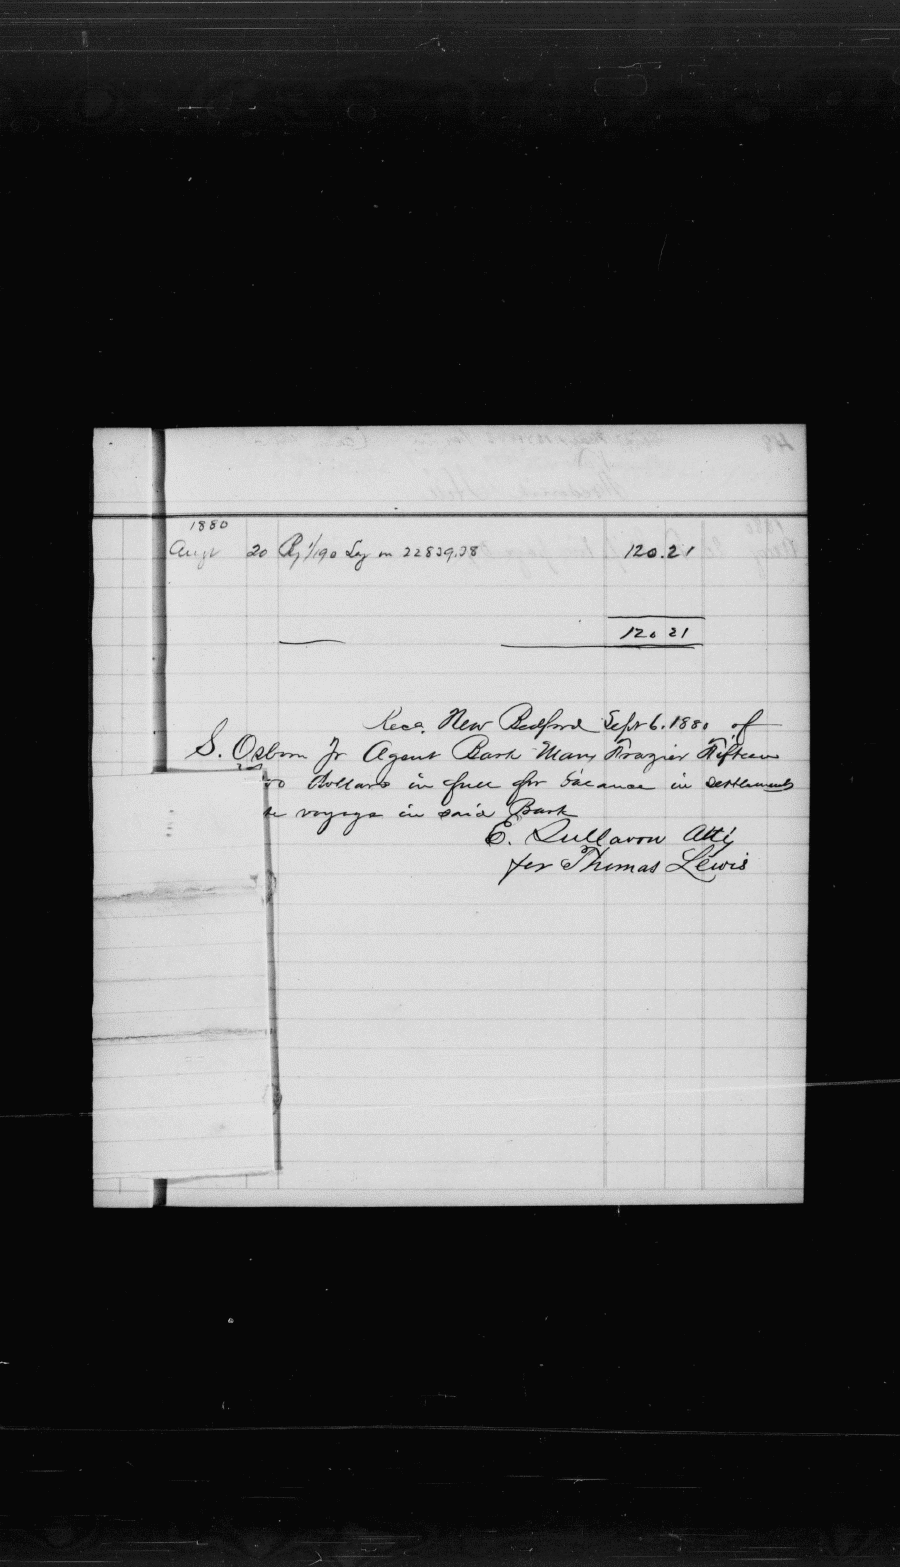 1880
Augt 20 By 1/190 Lay on 22839.38 120.21
120 21
Recd. New Bedford Sept 6. 1880 of
S. Osborn Jr Agent Bark Mary Frazier Fifteen
Dollars in full for balance in settlement
voyage in said Bark
E. Sullavou Atty
for Thomas Lewis